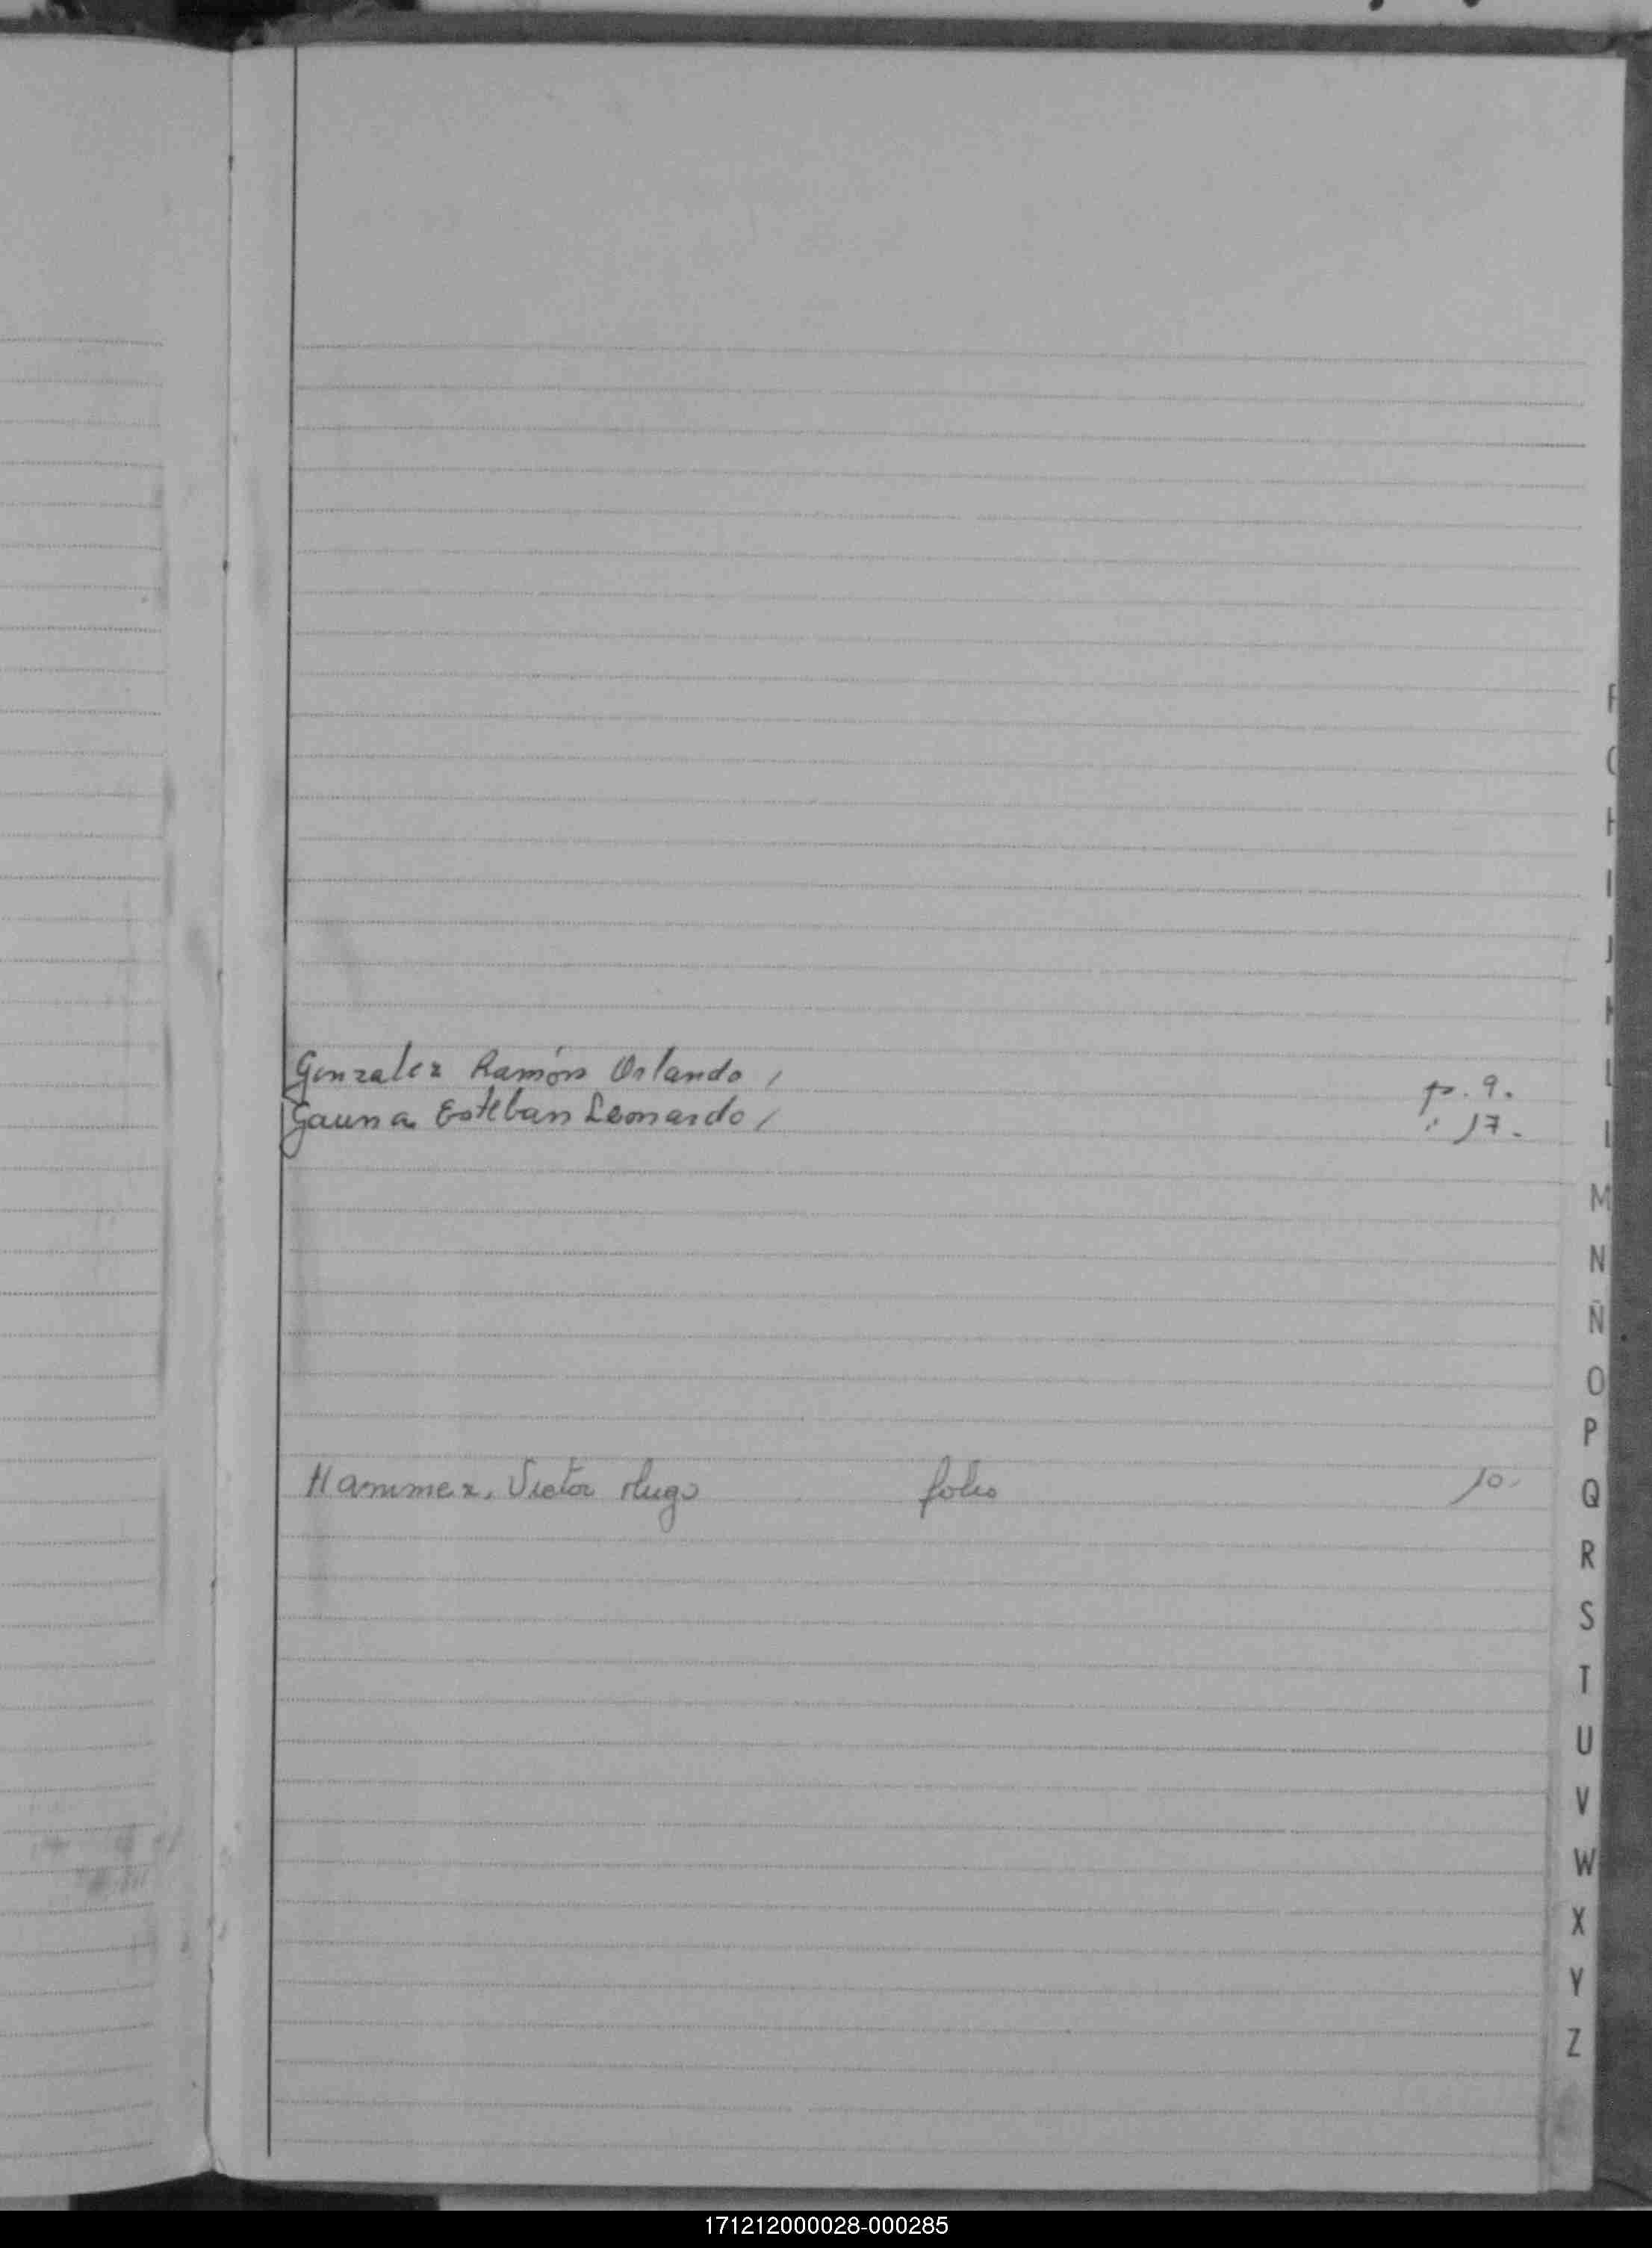 Gonzalez Ramón Orlando / p. 9.
Gauna Esteban Leonardo / " 17.
Hammer, Victor Hugo folio 10.
F
G
H
I
J
K
L
L
M
N
Ñ
O
P
Q
R
S
T
U
V
W
X
Y
Z
171212000028-000285